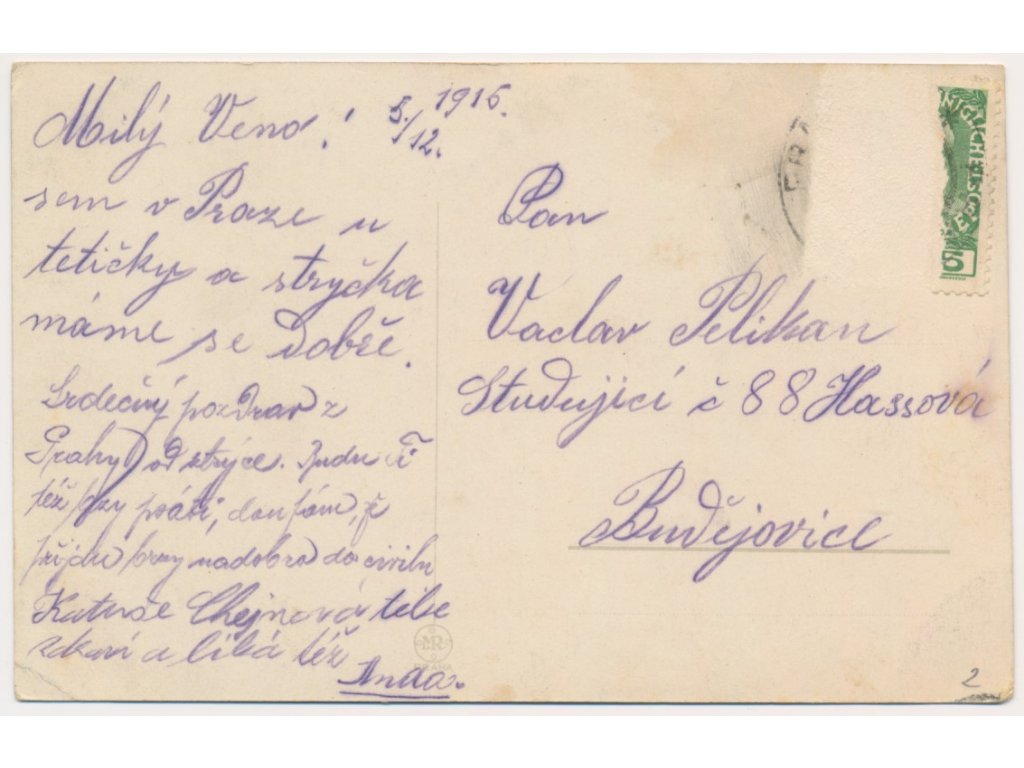 Milý Veno! 5./12. 1916.
sem v Praze u
tetičky a strýčka
máme se dobře.
Srdečný pozdrav z
Prahy od strýce. Budu Ti
též brzy psáti, doufám, že
přijdu brzy nadobro do civilu
Katuše Chejnová tebe
zdraví a líbá též
Anda.
Pan
Vaclav Pelikan
Studující č 88 Hassová
Budějovice
MR
PRAHA
5
2